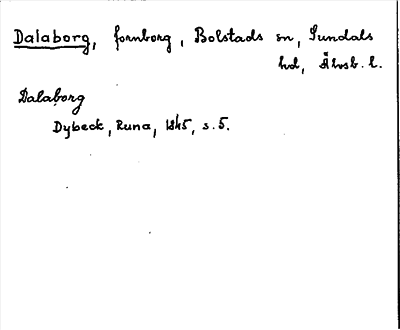 Dalaborg, fornborg, Bolstads sn, Sundals
hd, Älvsb. l.
Dalaborg
Dybeck, Runa, 1845, s. 5.